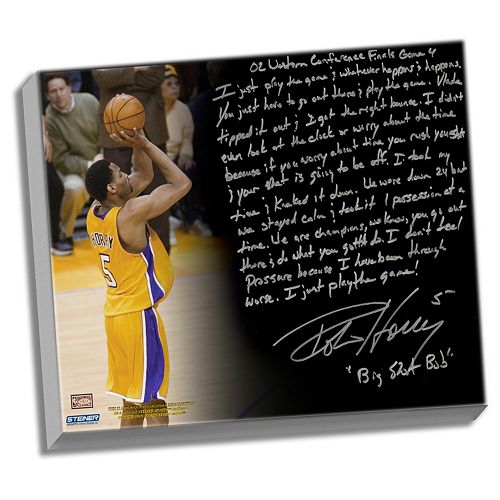 02 Western Conference Finals Game 4
I just play the game & whatever happens happens.
You just have to go out there & play the game. Vlade
tipped it out & I got the right bounce. I didn't
even look at the clock or worry about the time
because if you worry about time you rush your shot
& your shot is going to be off. I took my
time & knocked it down. We were down 24 but
we stayed calm & took it 1 possession at a
time. We are champions, we know, you go out
there & do what you gotta do. I don't feel
Pressure because I have been through
worse. I just play the game!
Robert Horry 5
"Big Shot Bob"
HORRY
5
STEINER